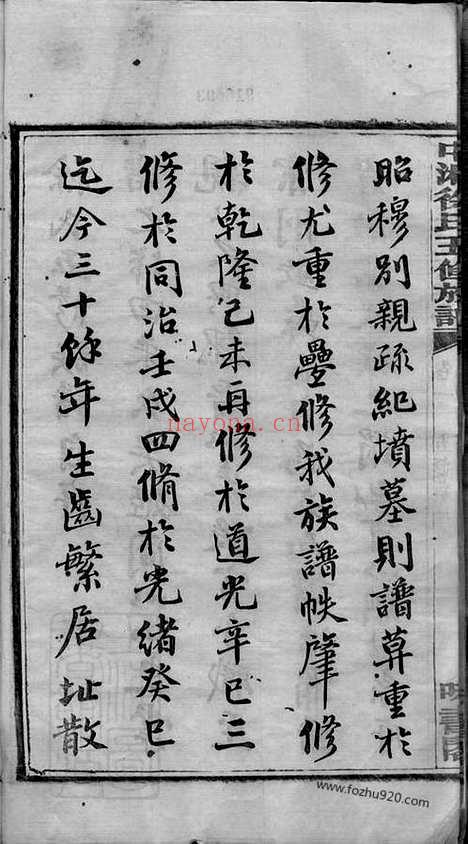 中湘徐氏五修族譜
昭穆別親疏紀墳墓則譜莫重於
修尤重於疊修我族譜帙肇修
於乾隆己未再修於道光辛巳三
修於同治壬戌四脩於光緒癸巳
迄今三十餘年生齒繁居址散
nayona.cn
www.fozhu920.com